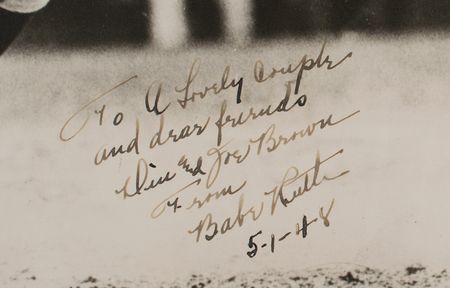 To A Lovely Couple
and dear friends
and Joe Brown
From
Babe Ruth
5-1-48